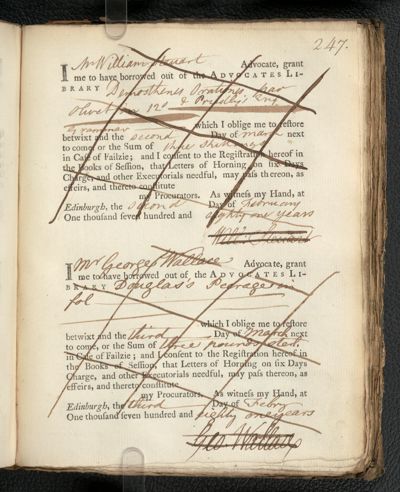 247.
I Mr William Stewart Advocate, grant
me to have borrowed out of the ADVOCATES LI-
BRARY Demosthenes Orationes, par
Olivet in 12o & Priestley's Eng
Grammar which I oblige me to restore
betwixt and the second Day of March next
to come, or the Sum of three shill
in Case of Failzie; and I consent to the Registration hereof in
the Books of Session, that Letters of Horning on six Days
Charge, and other Executorials needful, may pass thereon, as
effeirs, and thereto constitute
my Procurators. As witness my Hand, at
Edinburgh, the second Day of February
One thousand seven hundred and eighty one years
Will: Stewart
I Mr George Wallace Advocate, grant
me to have borrowed out of the ADVOCATES LI-
BRARY Douglas's Peerage in
fol
which I oblige me to restore
betwixt and the third Day of March next
to come, or the Sum of three pounds
in Case of Failzie; and I consent to the Registration hereof in
the Books of Session, that Letters of Horning on six Days
Charge, and other Executorials needful, may pass thereon, as
effeirs, and thereto constitute
my Procurators. As witness my Hand, at
Edinburgh, the third Day of Febry
One thousand seven hundred and eighty one years
Geo. Wallace